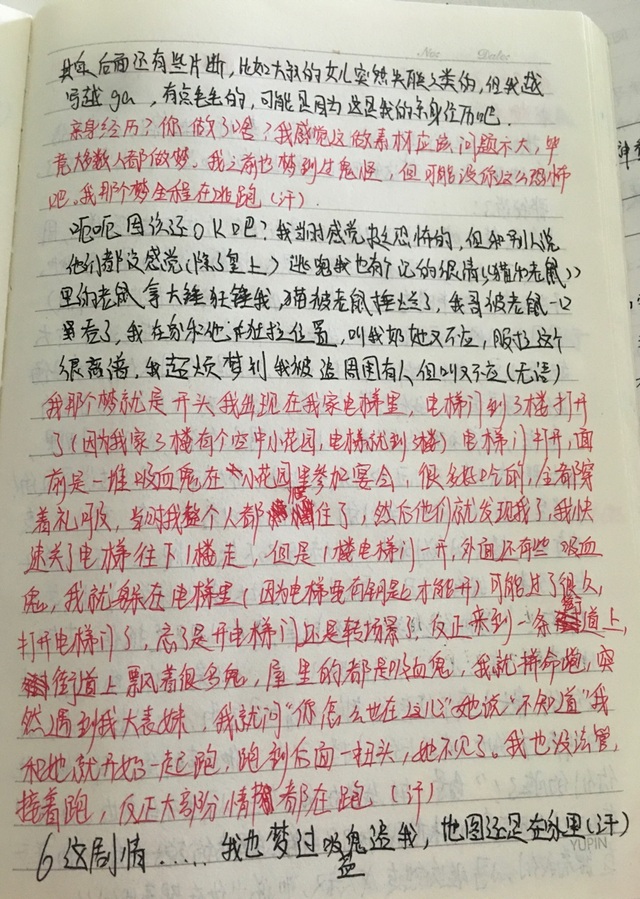 No: Date:
其实后面还有些片断，比如大叔的女儿突然失联之类的，但我越
写越ga，有点毛毛的，可能是因为这是我的亲身经历吧．
亲身经历？你做了啥？我感觉这做素材应该问题不大，毕
竟大多数人都做梦。我之前也梦到过鬼怪，但可能没你这么恐怖
吧。我那个梦全程在逃跑（汗）．
呃呃 因该还OK吧？我当时感觉挺恐怖的，但和别人说
他们都没感觉（除了皇上）逃鬼我也有个记的很清《《猫和老鼠》》
里的老鼠拿大锤狂锤我，猫被老鼠捶烂了，我哥被老鼠一口
吞了，我在家和他疯狂拉位置，叫我奶她又不应，服挂这个
很离谱，我超烦梦到我被追周围有人但叫又不应（无语）
我那个梦就是开头我出现在我家电梯里，电梯门到3楼打开
了（因为我家3楼有个空中小花园，电梯就到3楼）电梯门打开，面
前是一堆吸血鬼在小花园里参加宴会，很多好吃的，全都穿
着礼服，当时我整个人都愣住了，然后他们就发现我了，我快
速关了电梯往下1楼走，但是1楼电梯门一开，外面还有些吸血
鬼，我就躲在电梯里（因为电梯要有钥匙才能开）可能过了很久，
打开电梯门了，忘了是开电梯门还是转场景了，反正来到一条街道上，
街道上飘着很多鬼，屋里的都是吸血鬼，我就拼命跑，突
然遇到我大表妹，我就问“你怎么也在这儿”她说“不知道”我
和她就开始一起跑，跑到后面一扭头，她不见了。我也没法管，
接着跑，反正大部份情节都在跑（汗）
6 这剧情……我也梦过吸血鬼追我，地图还是在家里（汗）
YUPIN